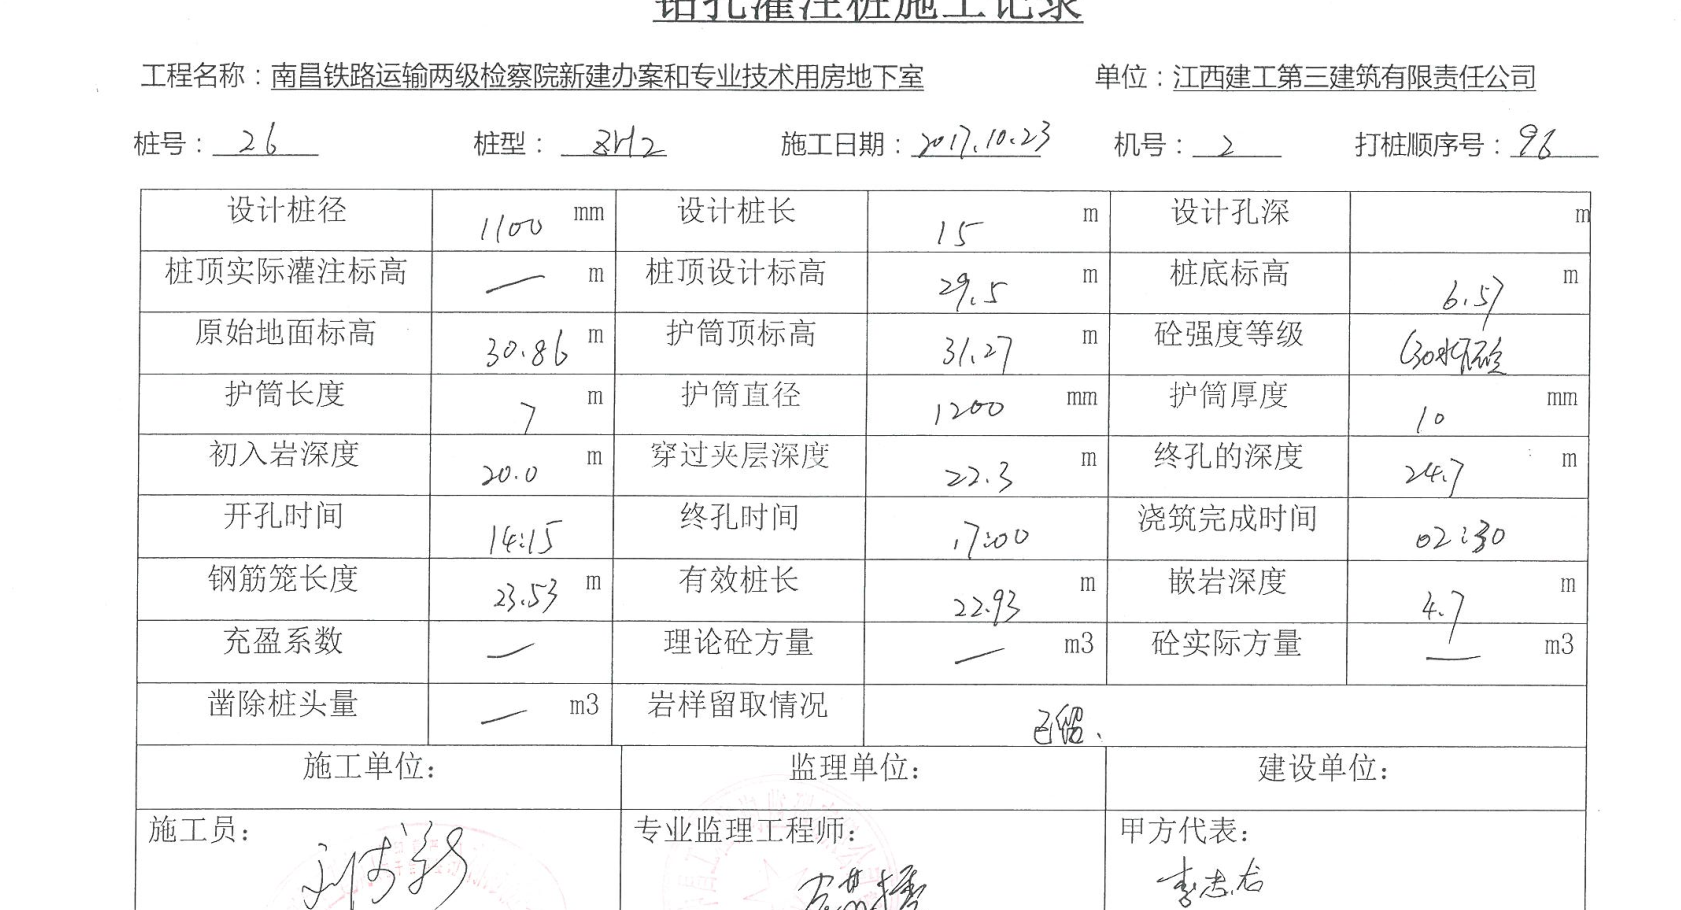 钻孔灌注桩施工记录
工程名称：南昌铁路运输两级检察院新建办案和专业技术用房地下室 单位：江西建工第三建筑有限责任公司
桩号： 26 桩型： ZH2 施工日期： 2017.10.23 机号： 2 打桩顺序号： 96
设计桩径 1100 mm 设计桩长 15 m 设计孔深 m
桩顶实际灌注标高 — m 桩顶设计标高 29.5 m 桩底标高 6.57 m
原始地面标高 30.86 m 护筒顶标高 31.27 m 砼强度等级 C30水下砼
护筒长度 7 m 护筒直径 1200 mm 护筒厚度 10 mm
初入岩深度 20.0 m 穿过夹层深度 22.3 m 终孔的深度 24.7 m
开孔时间 14:15 终孔时间 17:00 浇筑完成时间 02:30
钢筋笼长度 23.53 m 有效桩长 22.93 m 嵌岩深度 4.7 m
充盈系数 — 理论砼方量 — m3 砼实际方量 — m3
凿除桩头量 — m3 岩样留取情况 已留.
施工单位： 监理单位： 建设单位：
施工员： 专业监理工程师： 甲方代表： 李志右